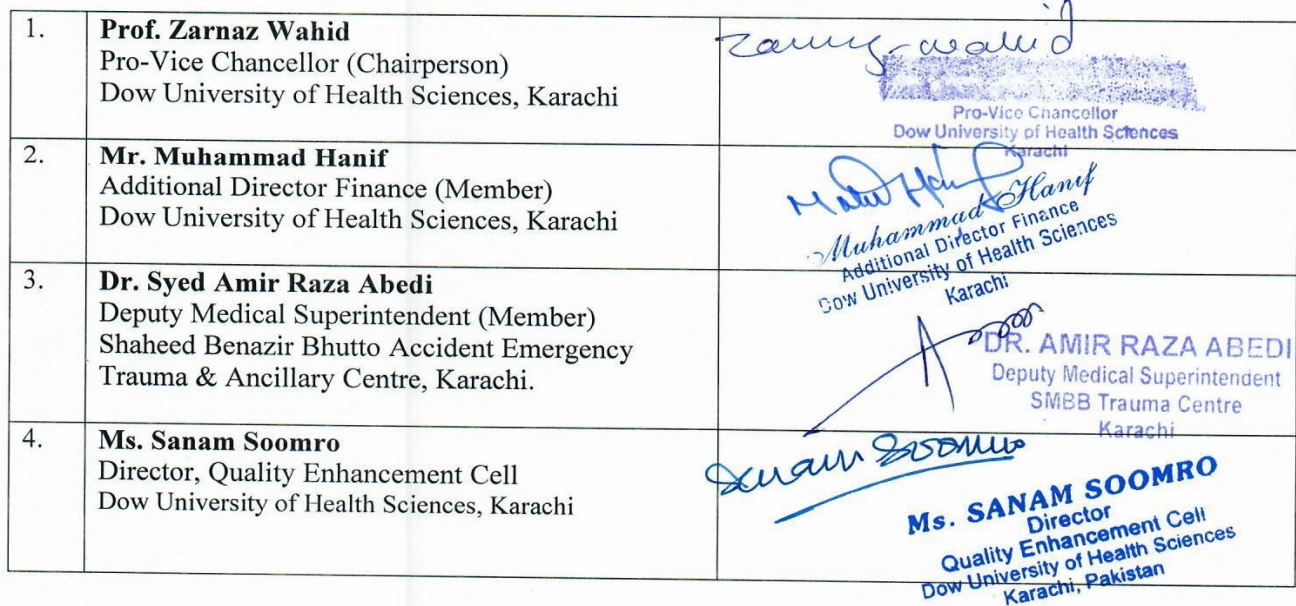 1.
Prof. Zarnaz Wahid
Pro-Vice Chancellor (Chairperson)
Dow University of Health Sciences, Karachi
Zarnaz Wahid
Pro-Vice Chancellor
Dow University of Health Sciences
Karachi
2.
Mr. Muhammad Hanif
Additional Director Finance (Member)
Dow University of Health Sciences, Karachi
Muhammad Hanif
Additional Director Finance
Dow University of Health Sciences
Karachi
3.
Dr. Syed Amir Raza Abedi
Deputy Medical Superintendent (Member)
Shaheed Benazir Bhutto Accident Emergency
Trauma & Ancillary Centre, Karachi.
DR. AMIR RAZA ABEDI
Deputy Medical Superintendent
SMBB Trauma Centre
Karachi
4.
Ms. Sanam Soomro
Director, Quality Enhancement Cell
Dow University of Health Sciences, Karachi
Sanam Soomro
Ms. SANAM SOOMRO
Director
Quality Enhancement Cell
Dow University of Health Sciences
Karachi, Pakistan